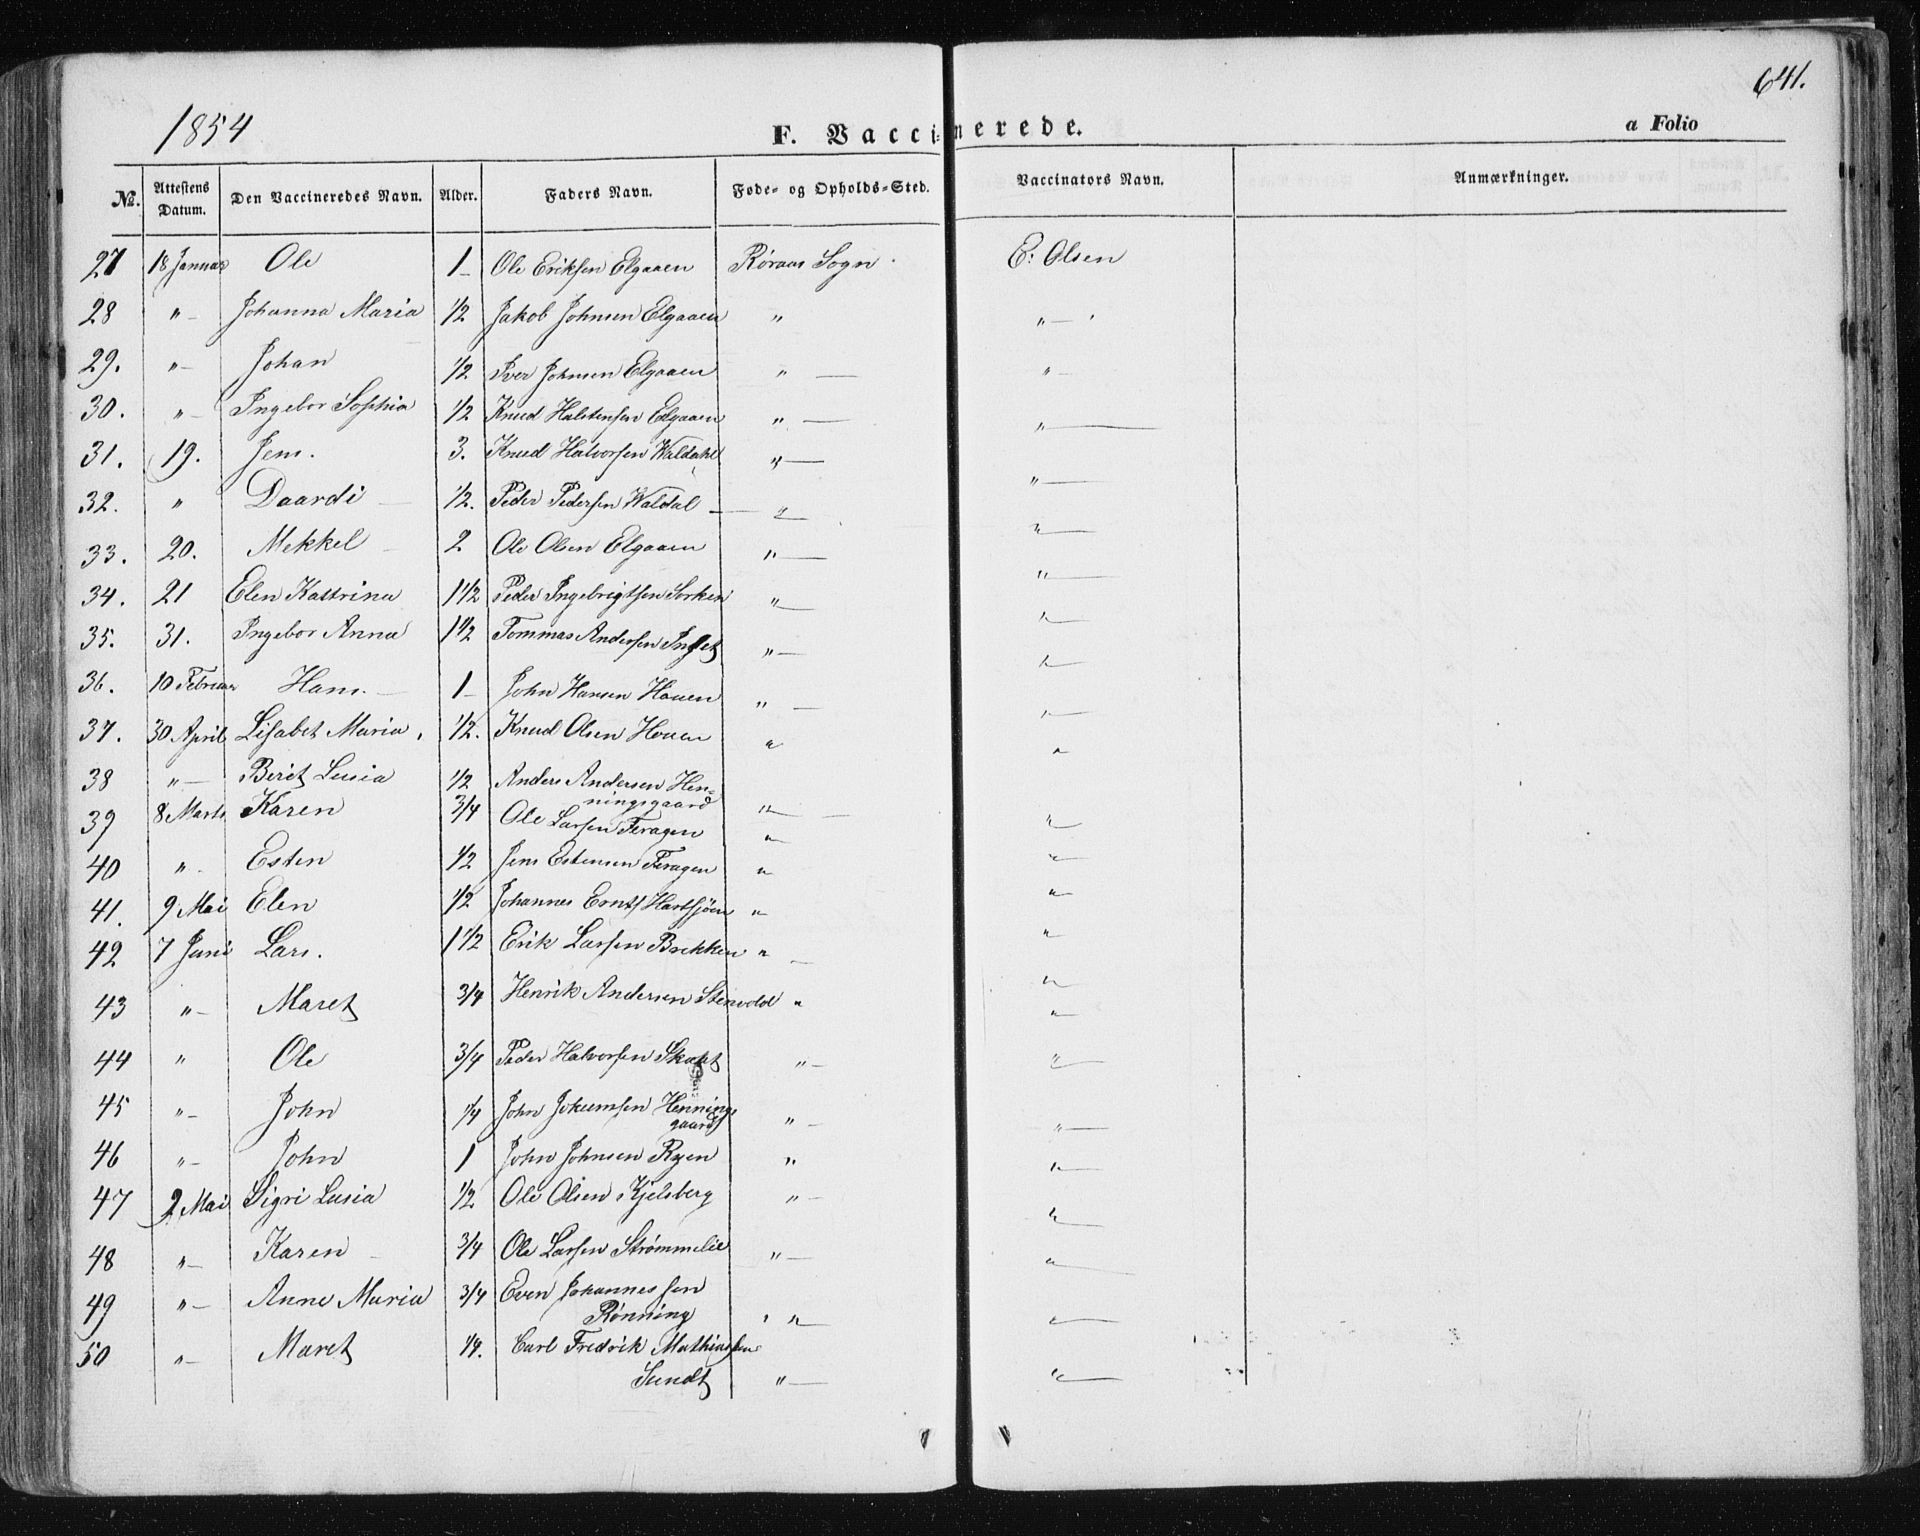 1854
F. Vaccinerede.
a Folio
641.
№. Attestens Datum. Den Vaccineredes Navn. Alder. Faders Navn. Føde- og Opholds-Sted. Vaccinators Navn. Anmærkninger.
27 18 Januar Ole 1 – Ole Eriksen Elgaaen Røraas Sogn. E. Olsen
28 " – Johanna Maria 1/2 Jakob Johnsen Elgaaen " " –
29. " – Johan 1/2 Iver Johnsen Elgaaen " – " –
30. " – Ingebor Sophia 1/2 Knud Halstensen Elgaaen " – " –
31. 19. Jens. 3. Knud Halvorsen Waldahl " – " –
32. " Daardi – 1/2. Peder Pedersen Waldal – " – " –
33. 20. Mekkel – 2 Ole Olsen Elgaaen " – " –
34. 21 Elen Kattrina 1 1/2 Peder Ingebrigtsen Sorken " – " –
35. 31. Ingebor Anna 1 1/2 Tommas Andersen " – " –
36. 10 Februar Hans. – 1 – John Hansen Houen " – " –
37. 30 April Lisabet Maria. 1/2. Knud Olsen Houen " "
38 " – Berit Lusia 1/2 Anders Andersen Hen-
ningsgaard " – " –
39 8 Marts Karen 3/4 Ole Larsen Feragen " " –
40 " – Esten 1/2 Jens Estensen Feragen " "
41. 9 Mai Elen 1/2 Johannes Ernts Harsjøen " "
42 7 Juni Lars. 1 1/2 Erik Larsen Brekken " – " –
43 " – Maret 3/4 Henrik Andersen Stenvold " " –
44 " Ole 3/4 Peder Halvorsen " – " –
45 " – John 1/4 John Jokumsen Hennings
gaard " – " –
46 " – John 1 John Johnsen Ryen " " –
47 2 Mai Sigri Lusia 1/2 Ole Olsen Kjelsberg " – " –
48 " – Karen – 3/4 Ole Larsen Strømmelie " – " –
49 " – Anne Maria 3/4 Even Johannessen
Rønning " – " –
50 " – Maret 1/4. Carl Fredrik Mathiasen
Sundt " – " –